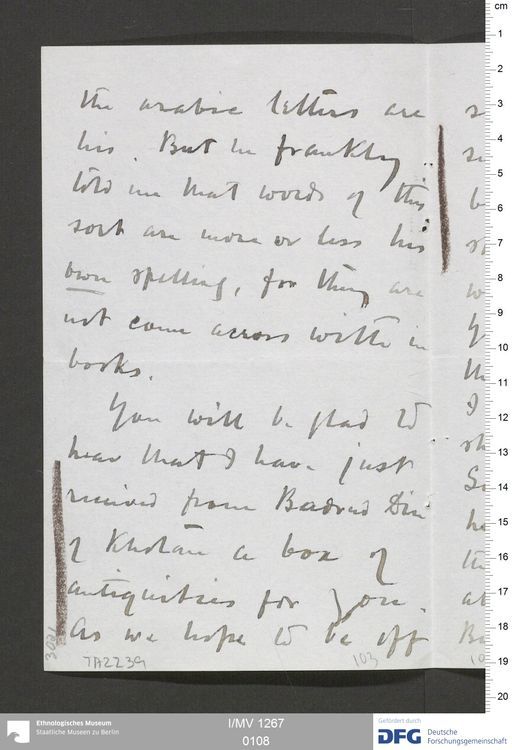 the arabic letters are
his. But he frankly
told me that words of this
sort are more or less his
own spelling, for they are
not come across with in
books.
You will be glad to
hear that I have just
received from Badrud Din
of Khotan a box of
antiquities for you.
As we hope to be off
TA2239
103
cm
1
2
3
4
5
6
7
8
9
10
11
12
13
14
15
16
17
18
19
20
Ethnologisches Museum
Staatliche Museen zu Berlin
I/MV 1267
0108
Gefördert durch
DFG
Deutsche
Forschungsgemeinschaft